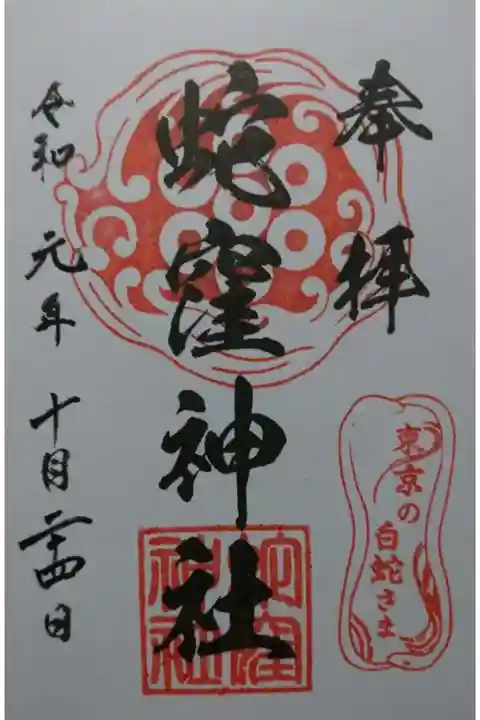 奉拝
蛇窪神社
蛇窪
神社
東京の
白蛇さま
令和元年十月二十四日